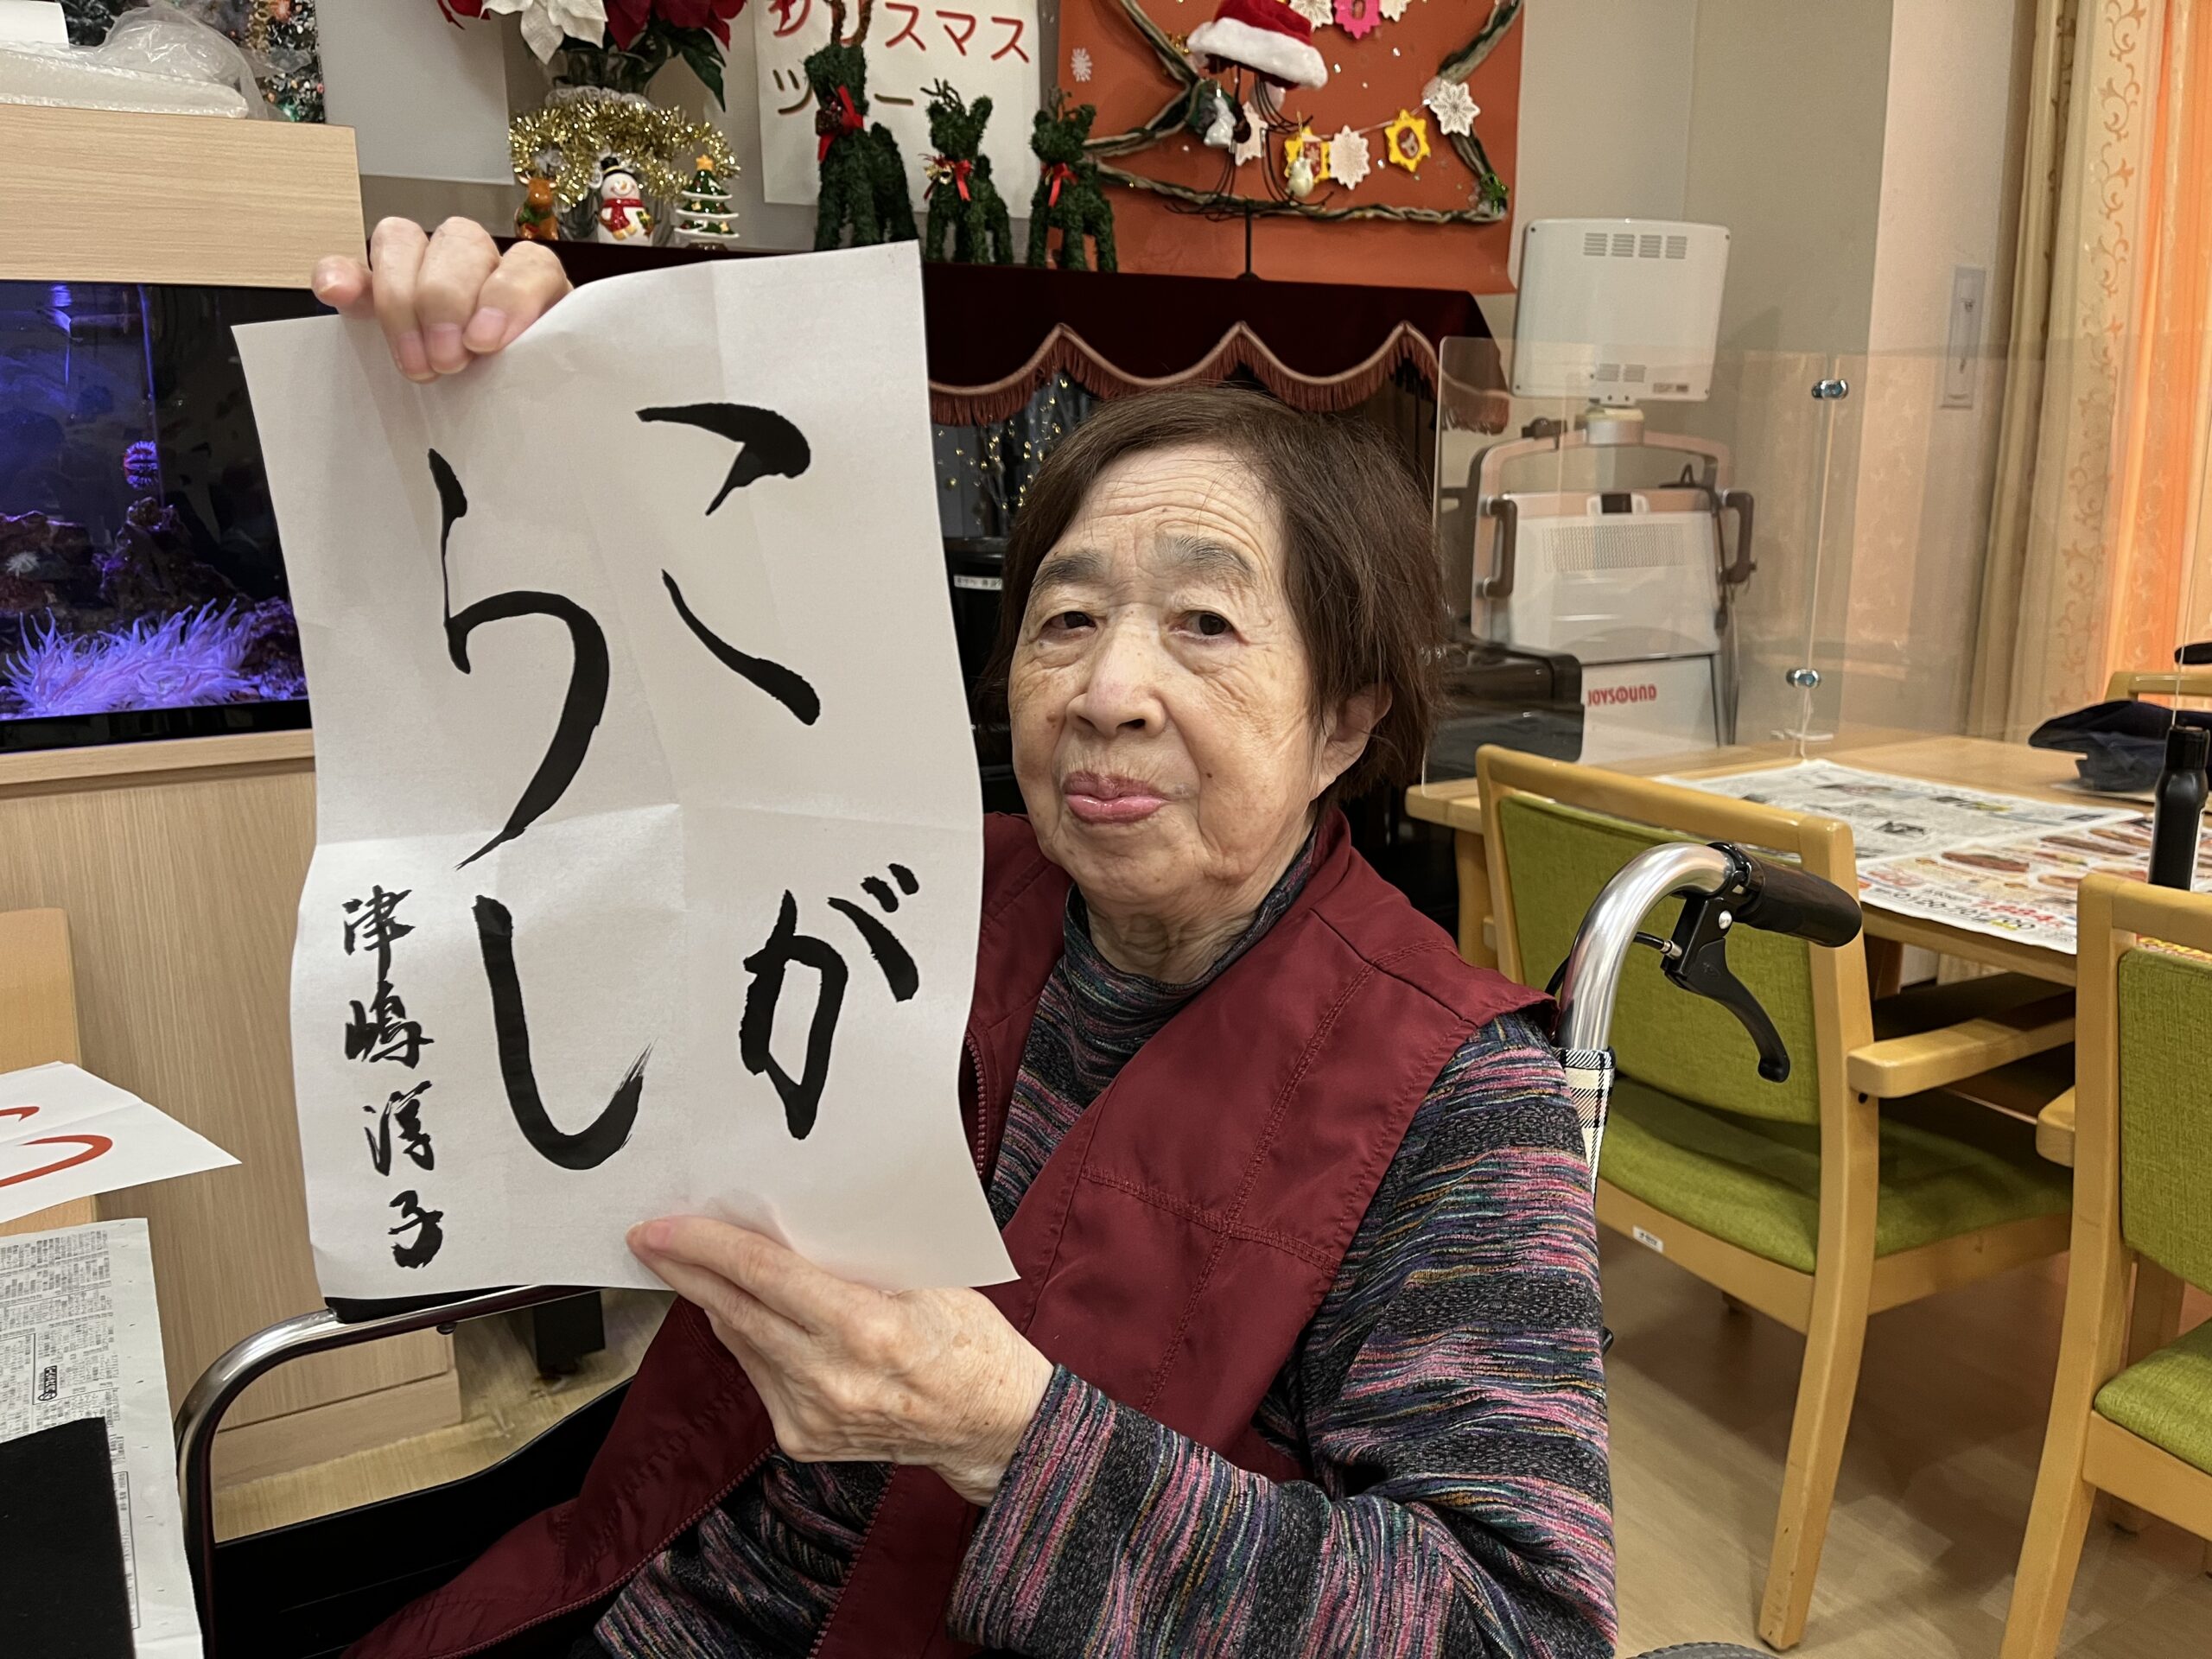 クリスマス
ツリー
こが
らし
津嶋淳子
JOYSOUND